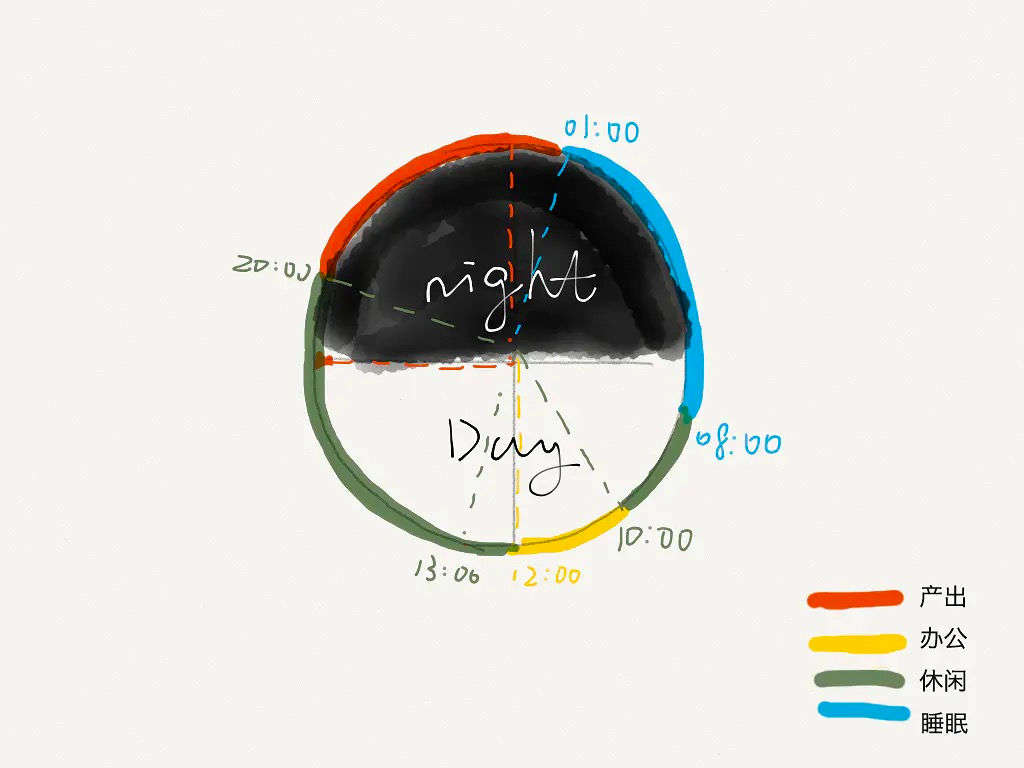 01:00
20:00
night
08:00
Day
10:00
13:00
12:00
产出
办公
休闲
睡眠